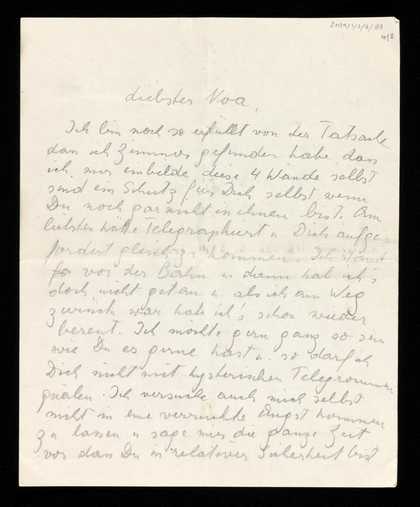 liebster Noa,
Ich bin noch so erfüllt von der Tatsache
dass ich Zimmer gefunden habe dass
ich mir einbilde diese 4 Wände selbst
sind ein Schutz für Dich selbst wenn
Du noch gar nicht in ihnen bist. Am
liebsten hätte telegraphiert u Dich aufge
fordert gleich zu kommen. Ich stand
for vor der Bahn u dann hab ich's
doch nicht getan u als ich am Weg
zurück war hab ich's schon wieder
bereut. Ich möchte gern ganz so sein
wie Du es gerne hast u. so darf ich
Dich nicht mit hysterischen Telegrammen
quälen. Ich versuche auch mich selbst
nicht in eine verrückte Angst kommen
zu lassen u sage mir die ganze Zeit
vor dass Du in relativer Sicherheit bist